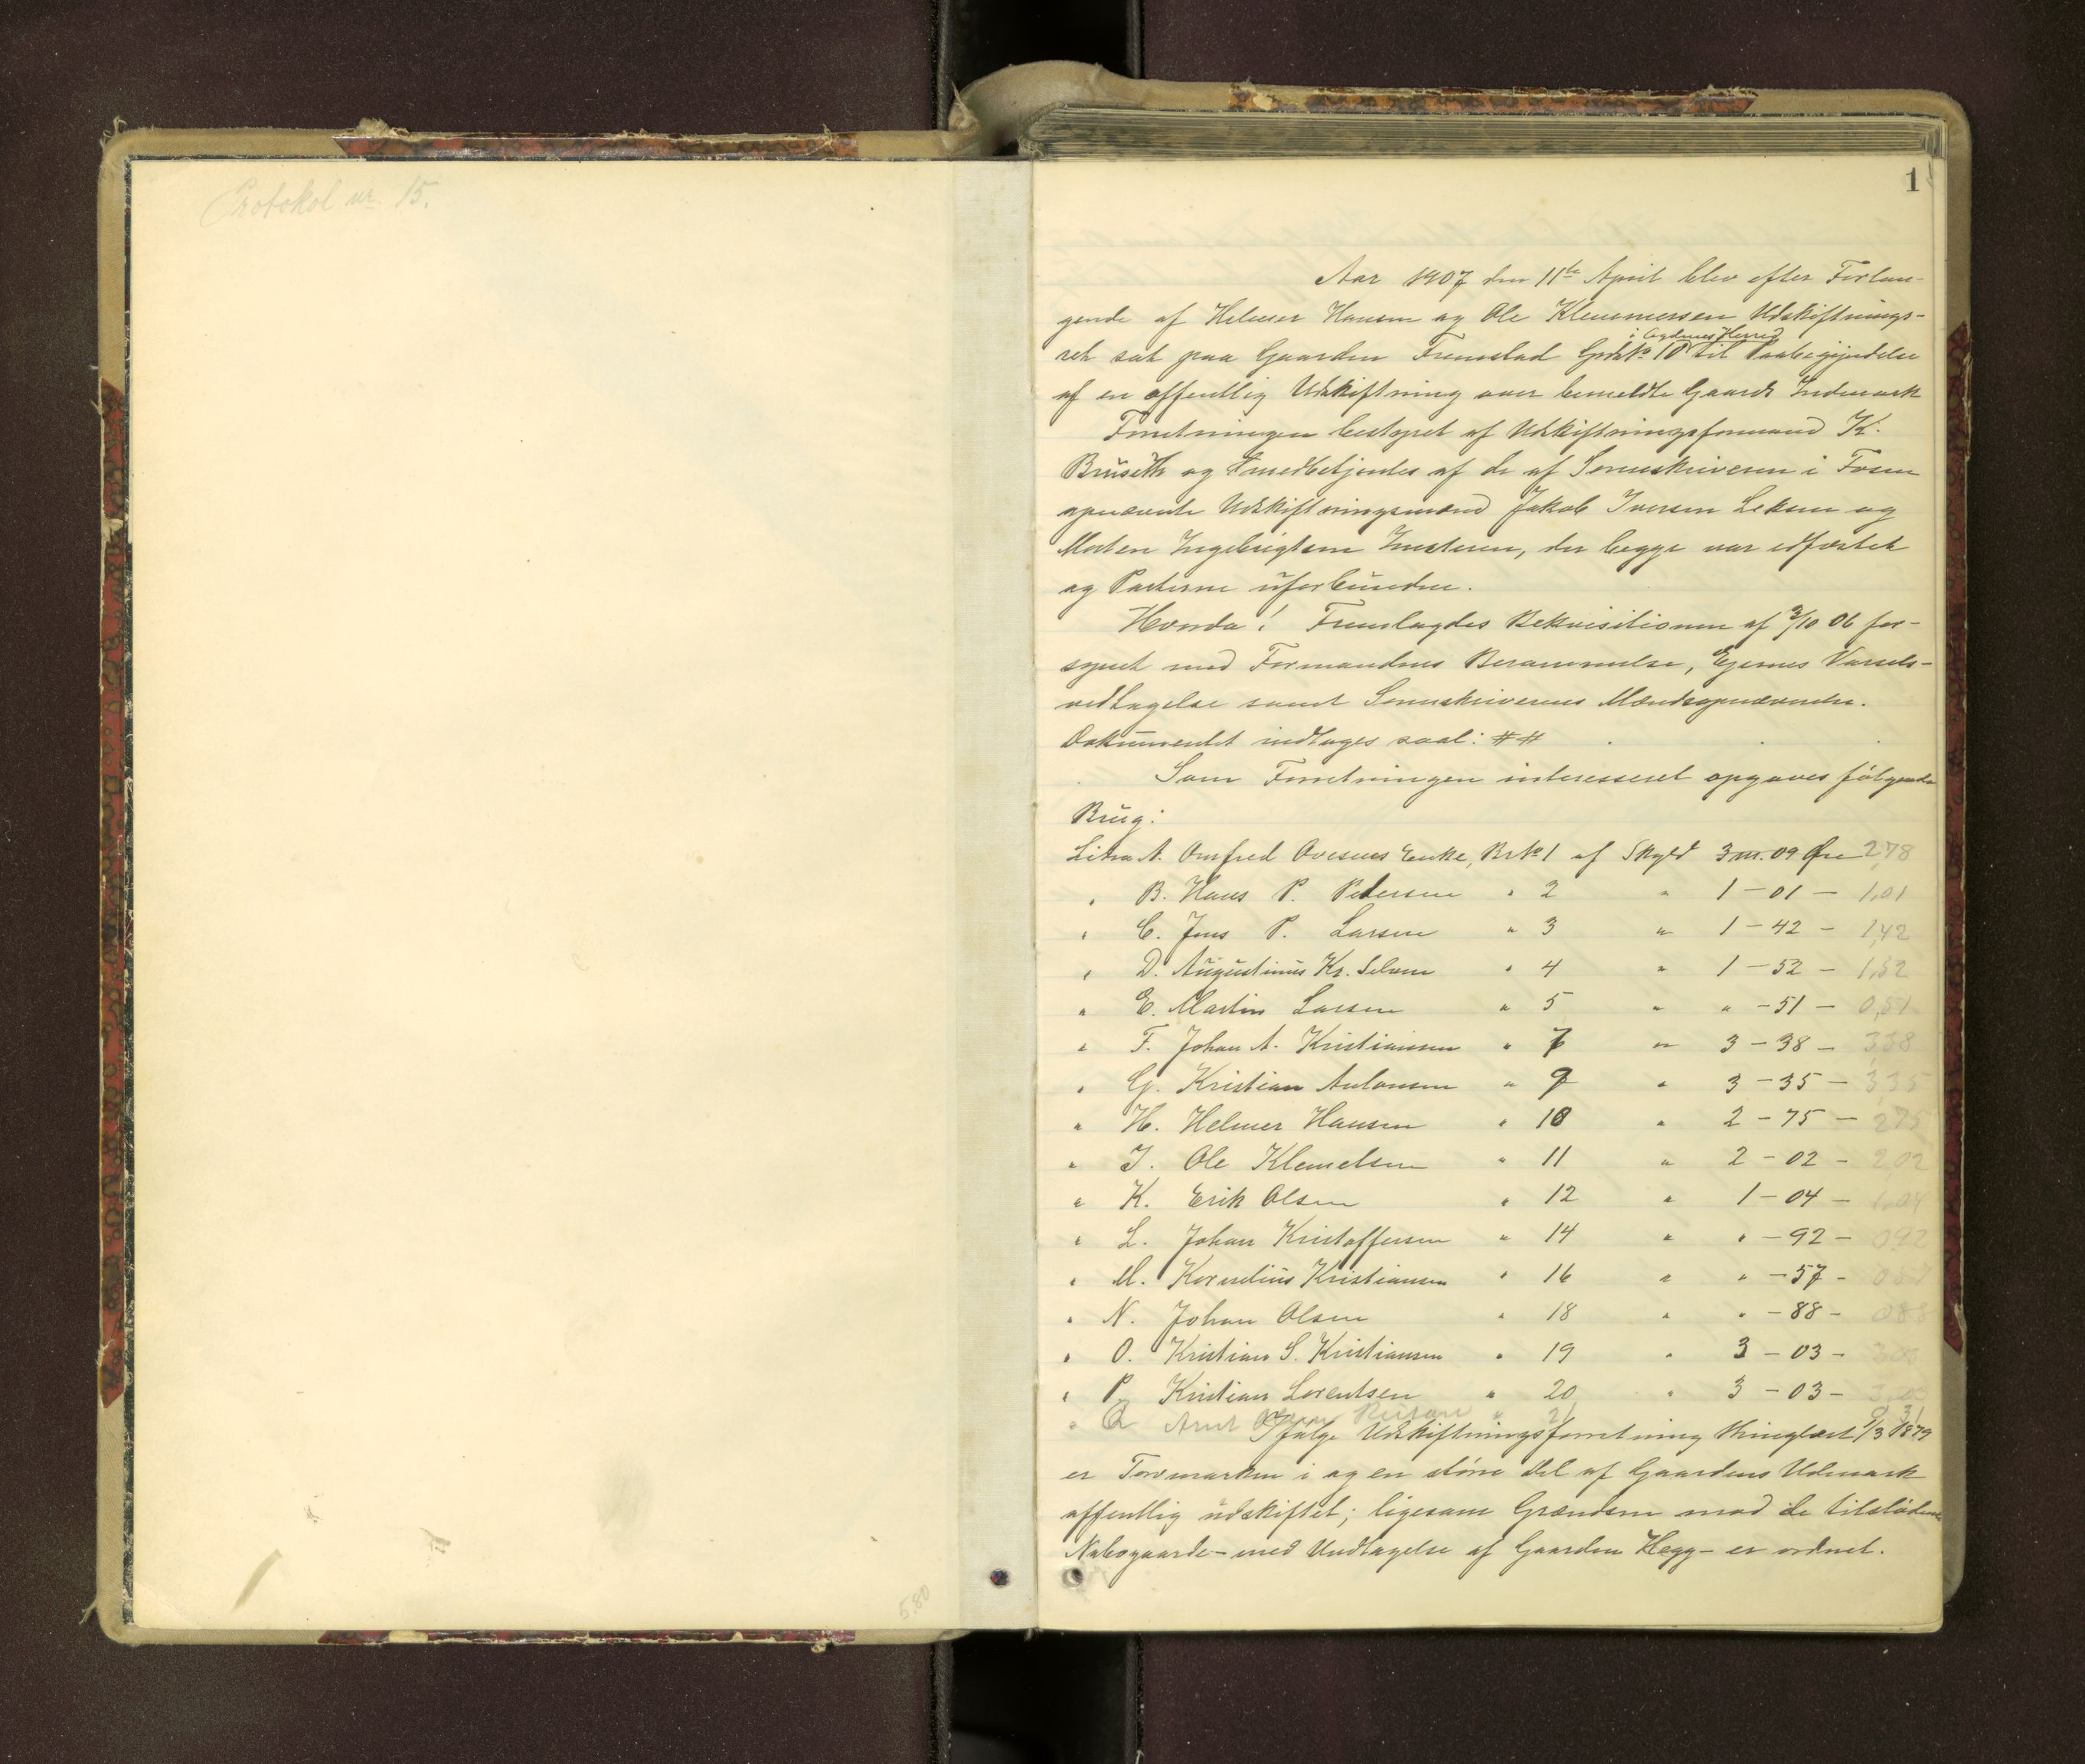 Protokol nr. 15.
5.80
1
Aar 1907 den 11te April blev efter Forlan-
gende af Helmer Hansen og Ole Klemmersen Udskiftnings-
i Agdenes Herred
ret sat paa Gaarden Fremstad Grds№ 10 til Paabegyndelse
af en offentlig Udskiftning over bemeldte Gaards Indmark
Forretningen bestyret af Udskiftningsformand K.
Bruseth og medbetjentes af de af Sorenskriveren i Fosen
opnævnte Udskiftningsmænd Jakob Iversen Leksen og
Morten Ingebrigtsen, der begge var edfæstet
og Parterne uforbundne.
Hvorda! Fremlagdes Rekvisitionen af 3/10 06 for-
synet med Formandens Berammelse, Ejernes Varsels-
vedtagelse samt Sorenskriverens Mændsopnævnelse.
Dokumentet indtages saal: ##
Som Forretningen interesseret opgaves følgende
Brug:
Litra A. Arnfred Ovesens Enke, Br№ 1 af Skyld 3 m. 09 Øre 2,78
" B. Hans P. Pedersen " 2 " 1 - 01 - 1,01
" C. Jens P. Larsen " 3 " 1 - 42 - 1,42
" D. Augustinus Kr. Selven " 4 " 1 - 52 - 1,52
" E. Martin Larsen " 5 " " - 51 - 0,51
" F. Johan A. Kristiansen " 7 " 3 - 38 - 3,38
" G. Kristian Antonsen " 9 " 3 - 35 - 3,35
" H. Helmer Hansen " 10 " 2 - 75 - 2,75
" I. Ole Klemetsen " 11 " 2 - 02 - 2,02
" K. Erik Olsen " 12 " 1 - 04 - 1,04
" L. Johan Kristoffersen " 14 " " - 92 - 0,92
" M. Kornelius Kristiansen " 16 " " - 57 - 0,57
" N. Johan Olsen " 18 " " - 88 - 0,88
" O. Kristian S. Kristiansen " 19 " 3 - 03 - 3,03
" P. Kristian Lorentsen " 20 " 3 - 03 - 3,03
" Q Arnt " 21 0,31
Ifølge Udskiftningsforretning thinglæst 1/3 1879
er Torvmarken i og en større Del af Gaardens Udmark
offentlig udskiftet; ligesom Grændsen mod de tilstødende
Nabogaarde - med Undtagelse af Gaarden Hegg - er ordnet.